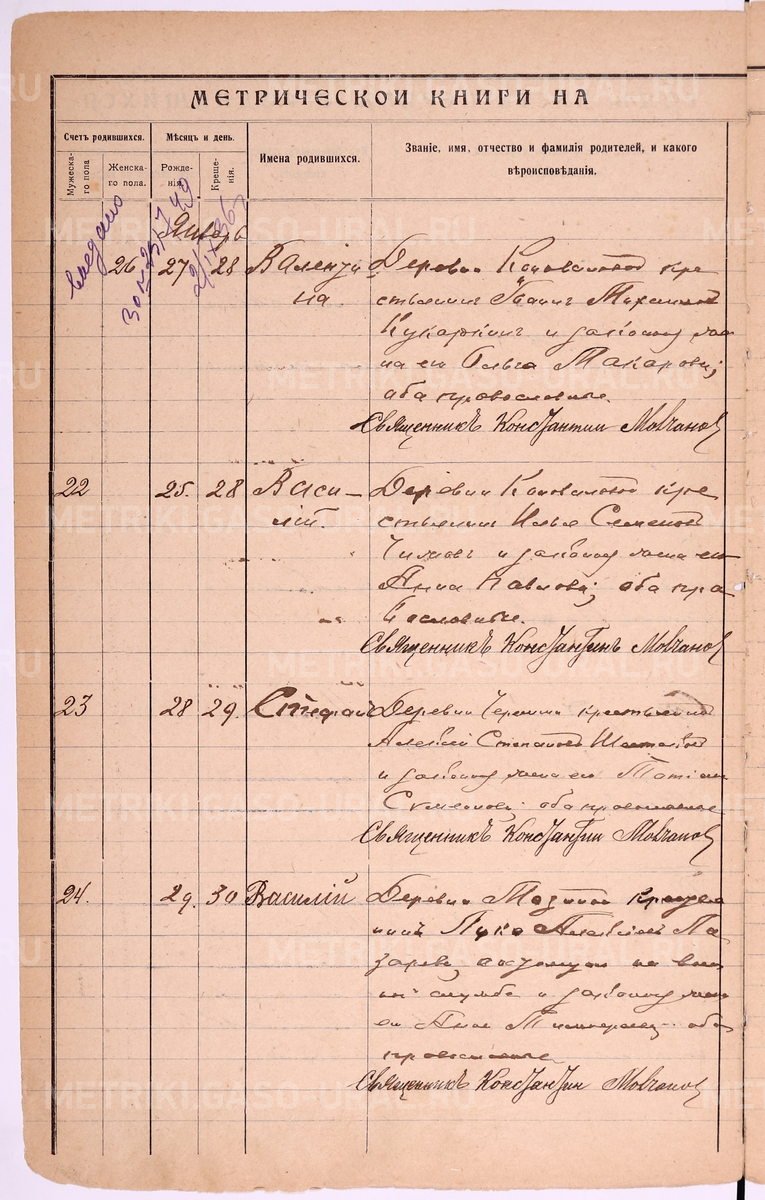 МЕТРИЧЕСКОЙ КНИГИ НА
Счетъ родившихся.
Мужеска-го пола
Женска-го пола.
Мѣсяцъ и день.
Рожде-нія.
Креще-нія.
Имена родившихся.
Званіе, имя, отчество и фамилія родителей, и какого
вѣроисповѣданія.
Январь
26 27 28 Валенти Деревни крe
на. стьянинъ Иванъ Михаиловъ
Кукаркинъ и законная жe
на его Ольга Макарова;
оба православные.
Священникъ Константин Молчановъ
22 25. 28 Васи- Деревни кре
лій. стьянинъ Илья Семеновъ
и законная жена его
Анна Павлова; оба пра
вославные.
Священникъ Константинъ Молчановъ
23 28 29. Стефанъ Деревни крестьянинъ
Алексѣй Степановъ
и законная жена его Татіана
Семенова; оба православные
Священникъ Константин Молчановъ
24. 29. 30 Василій Деревни крестья
нинъ Лука Ла
заревъ, на воен
ной службѣ и законная жена
его Анна оба
православные
Священникъ Константин Молчановъ
METRIKI.GASO-URAL.RU